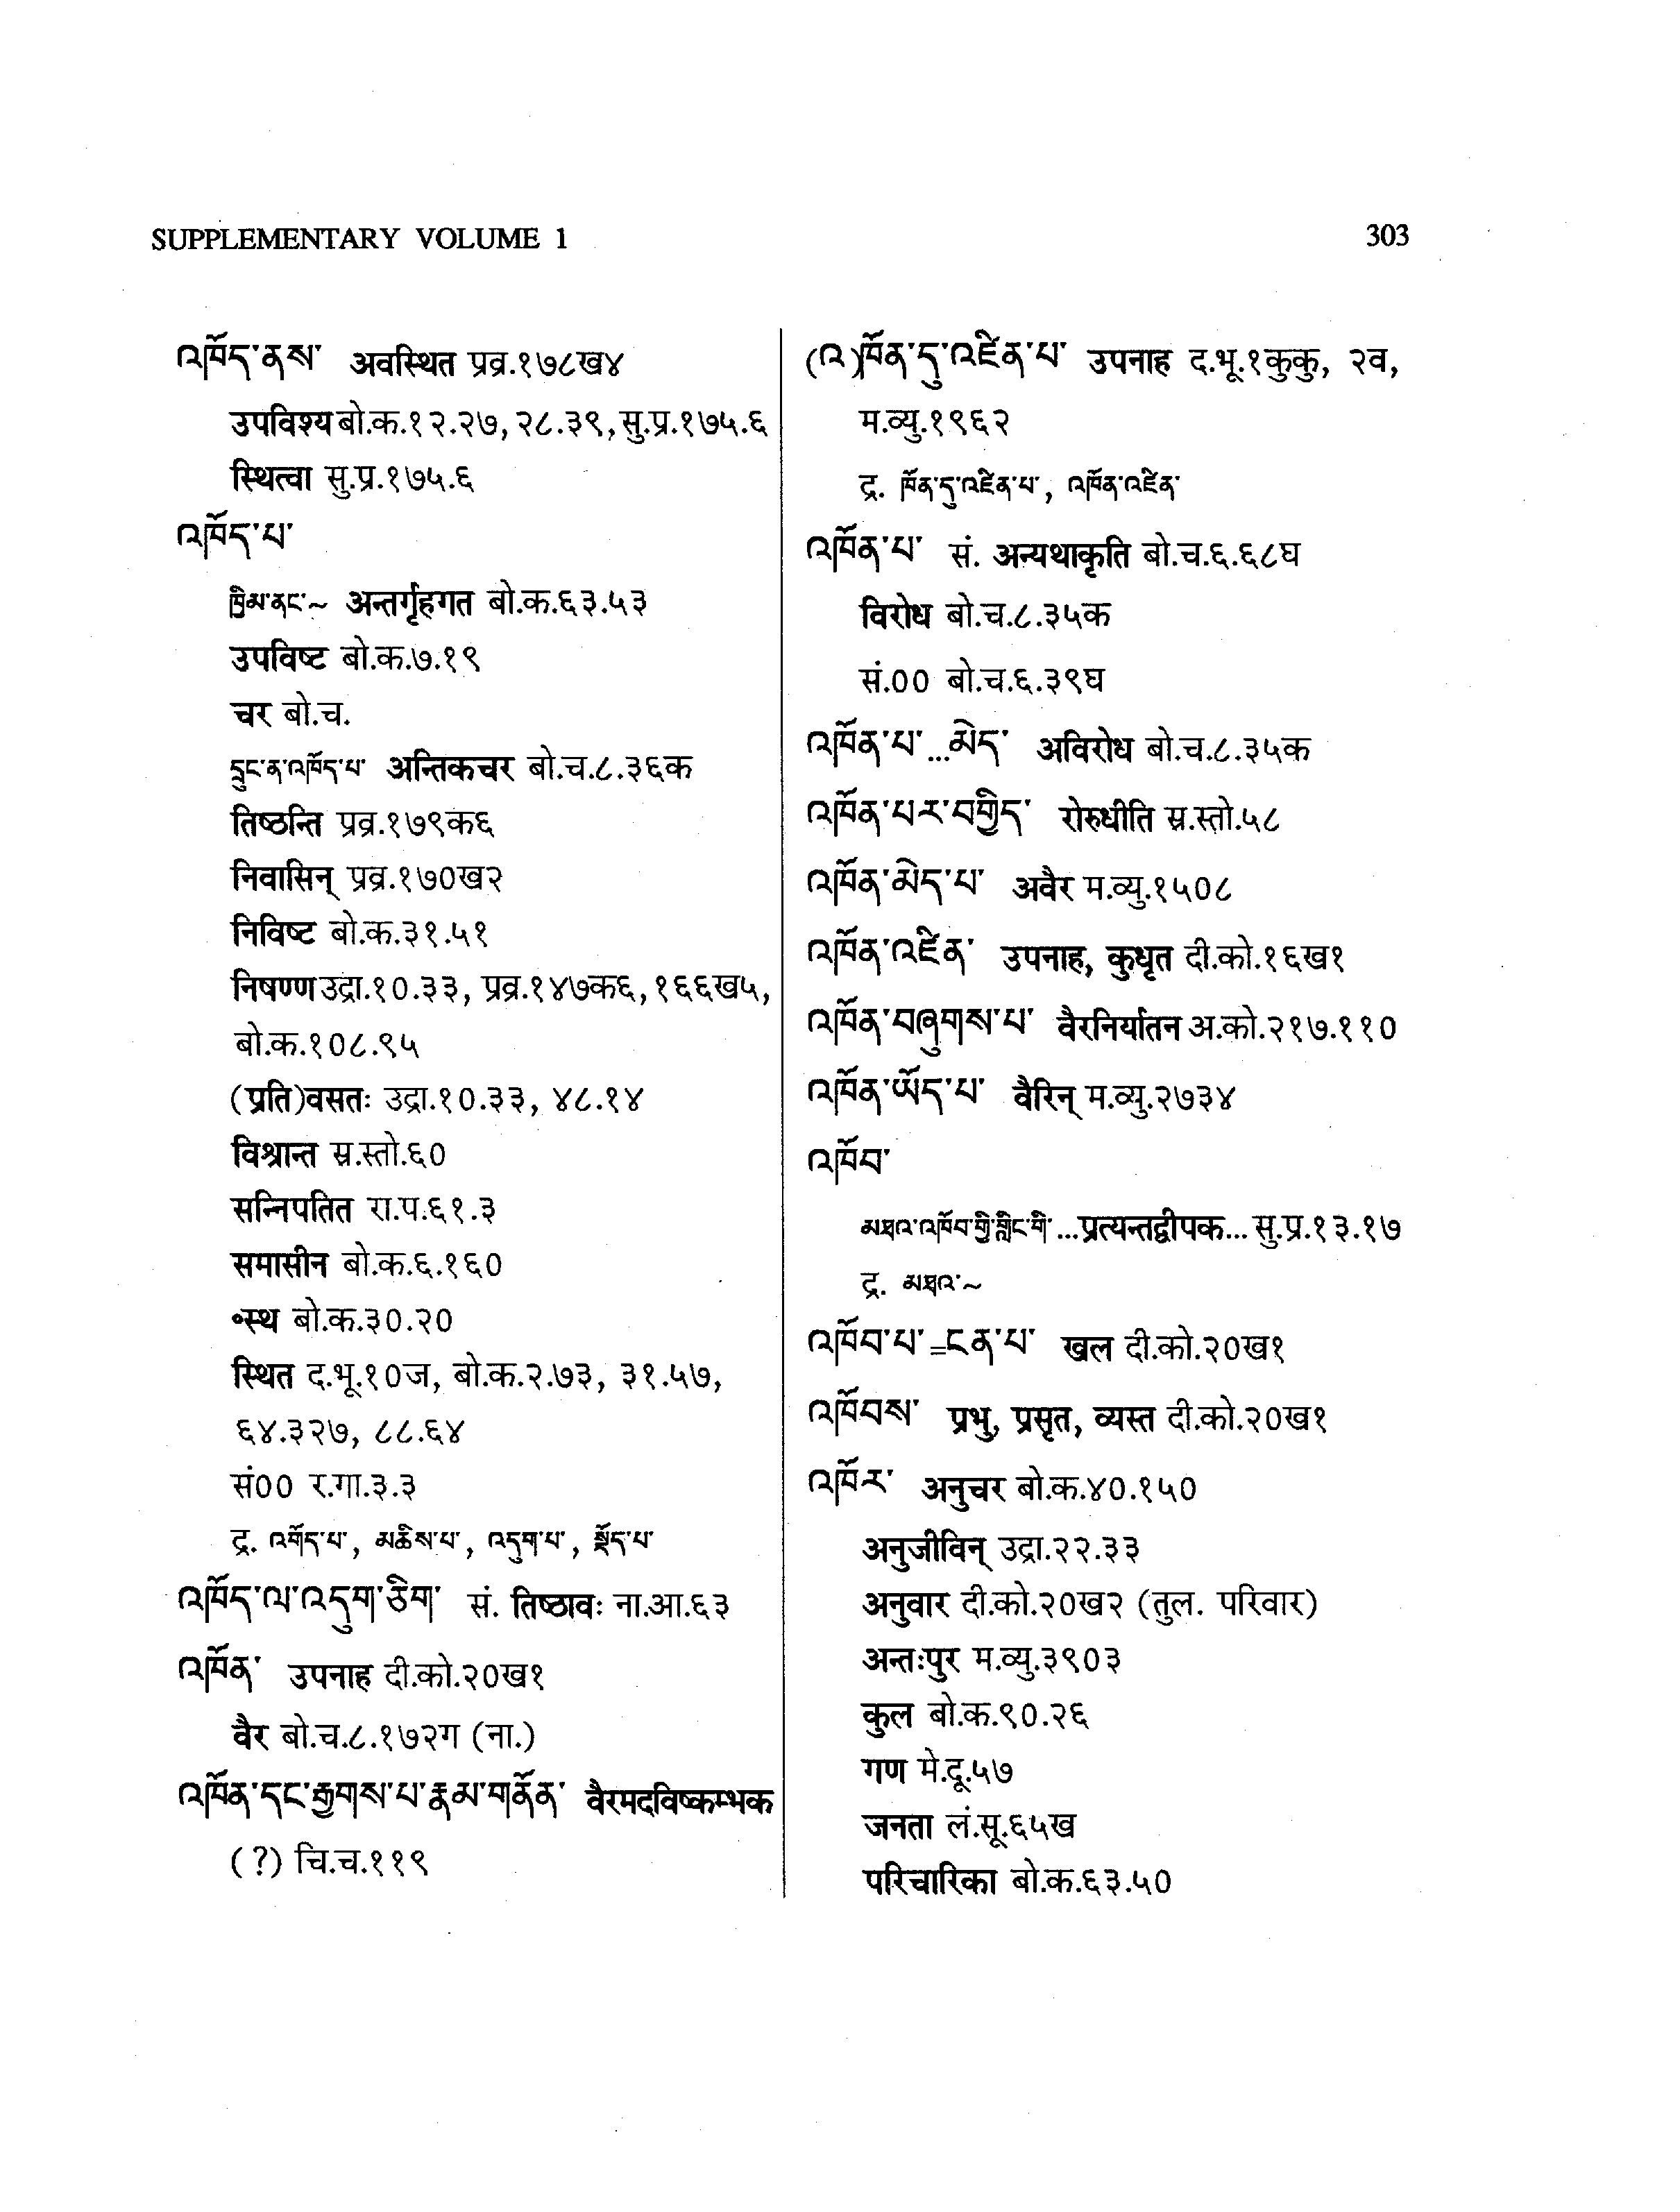 SUPPLEMENTARY VOLUME 1
303
འཁོད་ནས་ अवस्थित प्रव्र.१७८ख४
उपविश्य बो.क.१२.२७, २८.३९, सु.प्र.१७५.६
स्थित्वा सु.प्र.१७५.६
འཁོད་པ་
ཁྱིམ་ནང་~ अन्तर्गृहगत बो.क.६३.५३
उपविष्ट बो.क.७.१९
चर बो.च.
དྲུང་ན་འཁོད་པ་ अन्तिकचर बो.च.८.३६क
तिष्ठन्ति प्रव्र.१७९क६
निवासिन् प्रव्र.१७०ख२
निविष्ट बो.क.३१.५१
निषण्ण उद्रा.१०.३३, प्रव्र.१४७क६, १६६ख५,
बो.क.१०८.९५
(प्रति)वसतः उद्रा.१०.३३, ४८.१४
विश्रान्त स्र.स्तो.६०
सन्निपतित रा.प.६१.३
समासीन बो.क.६.१६०
॰स्थ बो.क.३०.२०
स्थित द.भू.१०ज, बो.क.२.७३, ३१.५७,
६४.३२७, ८८.६४
सं०० र.गा.३.३
द्र. འགོད་པ་, མཆིས་པ་, འདུག་པ་, སྡོད་པ་
འཁོད་ལ་འདུག་ཅིག་ सं. तिष्ठावः ना.आ.६३
འཁོན་ उपनाह दी.को.२०ख१
वैर बो.च.८.१७२ग (ना.)
འཁོན་དང་རྒྱགས་པ་རྣམ་གནོན་ वैरमदविष्कम्भक
(?) चि.च.११९
(འ)ཁོན་དུ་འཛིན་པ་ उपनाह द.भू.१कुकु, २व,
म.व्यु.१९६२
द्र. ཁོན་དུ་འཛིན་པ་, འཁོན་འཛིན་
འཁོན་པ་ सं. अन्यथाकृति बो.च.६.६८घ
विरोध बो.च.८.३५क
सं.०० बो.च.६.३९घ
འཁོན་པ་...མེད་ अविरोध बो.च.८.३५क
འཁོན་པར་བགྱིད་ रोरुधीति स्र.स्तो.५८
འཁོན་མེད་པ་ अवैर म.व्यु.१५०८
འཁོན་འཛིན་ उपनाह, कुधृत दी.को.१६ख१
འཁོན་བཞུགས་པ་ वैरनिर्यातन अ.को.२१७.११०
འཁོན་ཡོད་པ་ वैरिन् म.व्यु.२७३४
འཁོབ་
མཐའ་འཁོབ་ཀྱི་གླིང་གི་...प्रत्यन्तद्वीपक... सु.प्र.१३.१७
द्र. མཐའ་~
འཁོབ་པ་=ངན་པ་ खल दी.को.२०ख१
འཁོབས་ प्रभु, प्रसृत, व्यस्त दी.को.२०ख१
འཁོར་ अनुचर बो.क.४०.१५०
अनुजीविन् उद्रा.२२.३३
अनुवार दी.को.२०ख२ (तुल. परिवार)
अन्तःपुर म.व्यु.३९०३
कुल बो.क.९०.२६
गण मे.दू.५७
जनता लं.सू.६५ख
परिचारिका बो.क.६३.५०